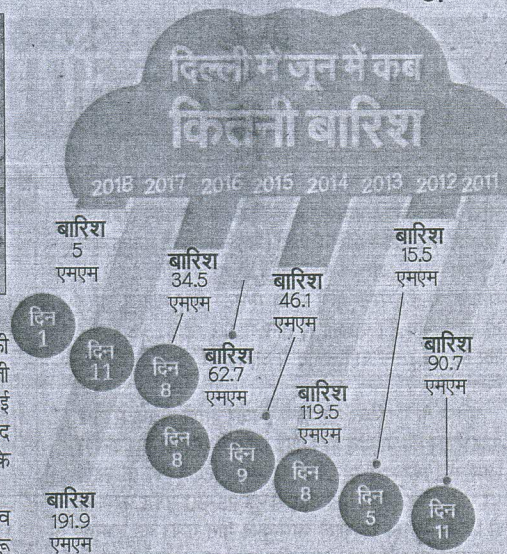 दिल्ली में जून में कब
कितनी बारिश
2018 2017 2016 2015 2014 2013 2012 2011
बारिश
5
एमएम
बारिश
34.5
एमएम
बारिश
46.1
एमएम
बारिश
15.5
एमएम
दिन
1
दिन
11
दिन
8
बारिश
62.7
एमएम
बारिश
90.7
एमएम
बारिश
119.5
एमएम
दिन
8
दिन
9
दिन
8
दिन
5
दिन
11
बारिश
191.9
एमएम
की
ई
द
के
व